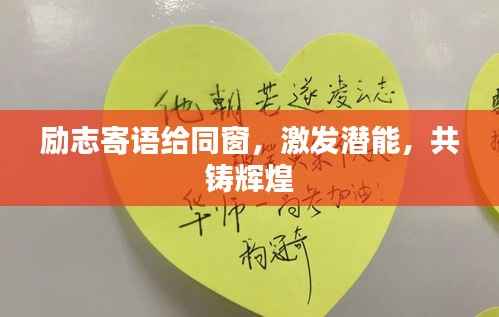 他朝若遂凌云志
励志寄语给同窗，激发潜能，共
铸辉煌
华师一高考加油！
杨冠奇